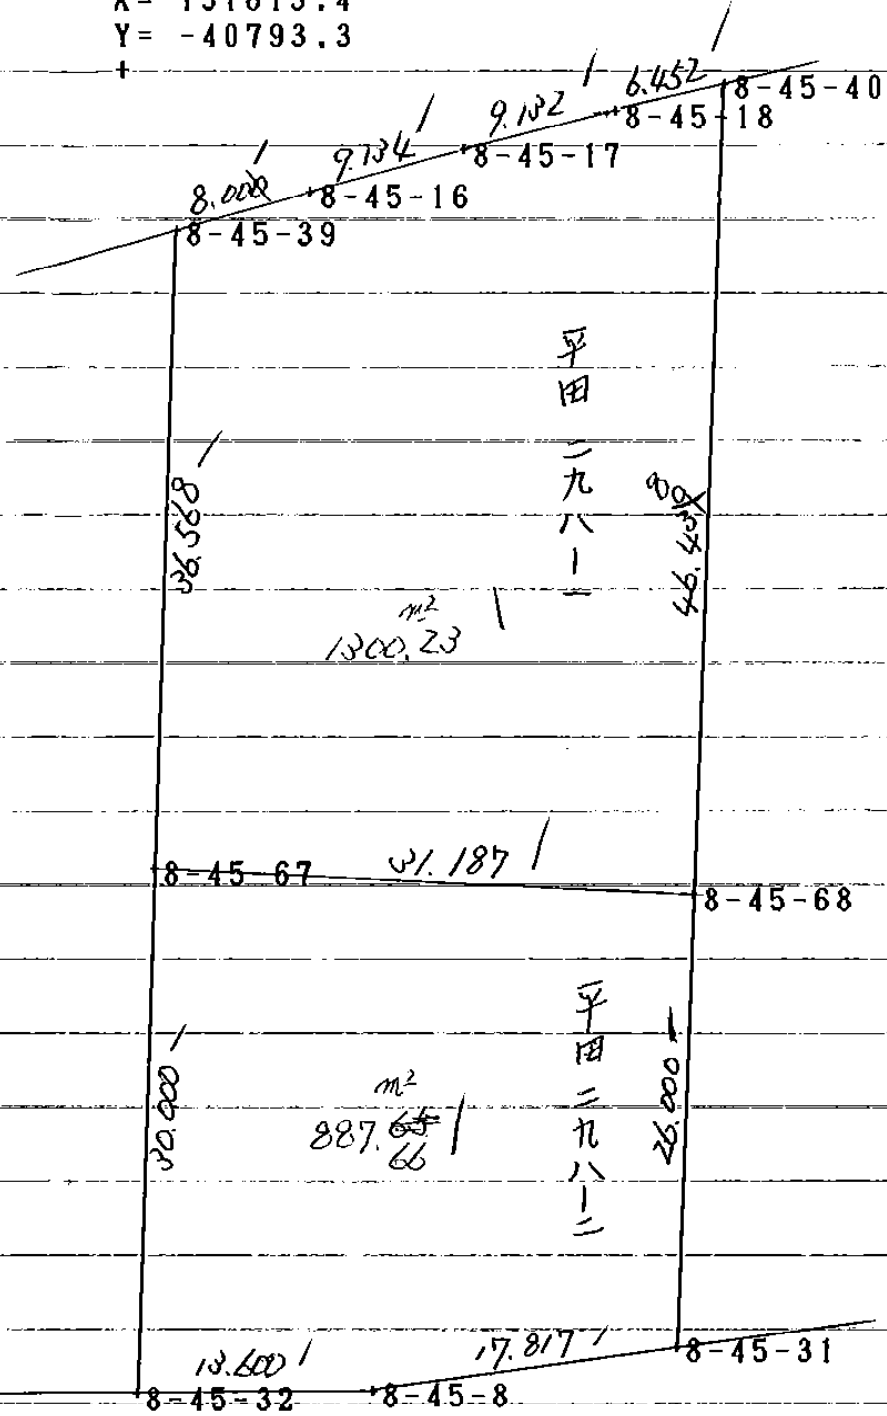 Y= -40793.3
+
6.452
8-45-40
9.132
8-45-18
9.134
8-45-17
8.000
8-45-16
8-45-39
平田 二九八-一
36.568
m²
1300.23
8-45-67
31.187
8-45-68
平田 二九八-二
30.000
26.000
m²
887.65
66
13.600
17.817
8-45-31
8-45-32
8-45-8